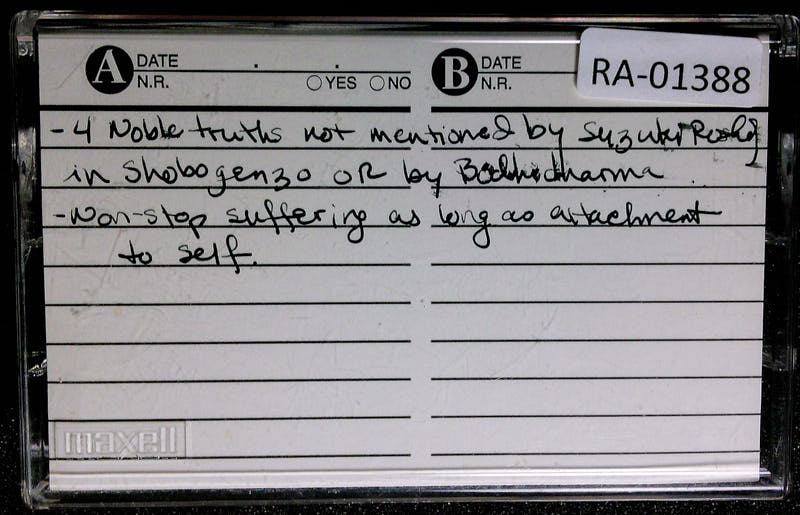 A DATE . .
N.R. YES NO
B DATE
N.R.
RA-01388
- 4 Noble truths not mentioned by Suzuki Roshi
in Shobogenzo OR by Bodhidharma
- Non-stop suffering as long as attachment
to self.
maxell